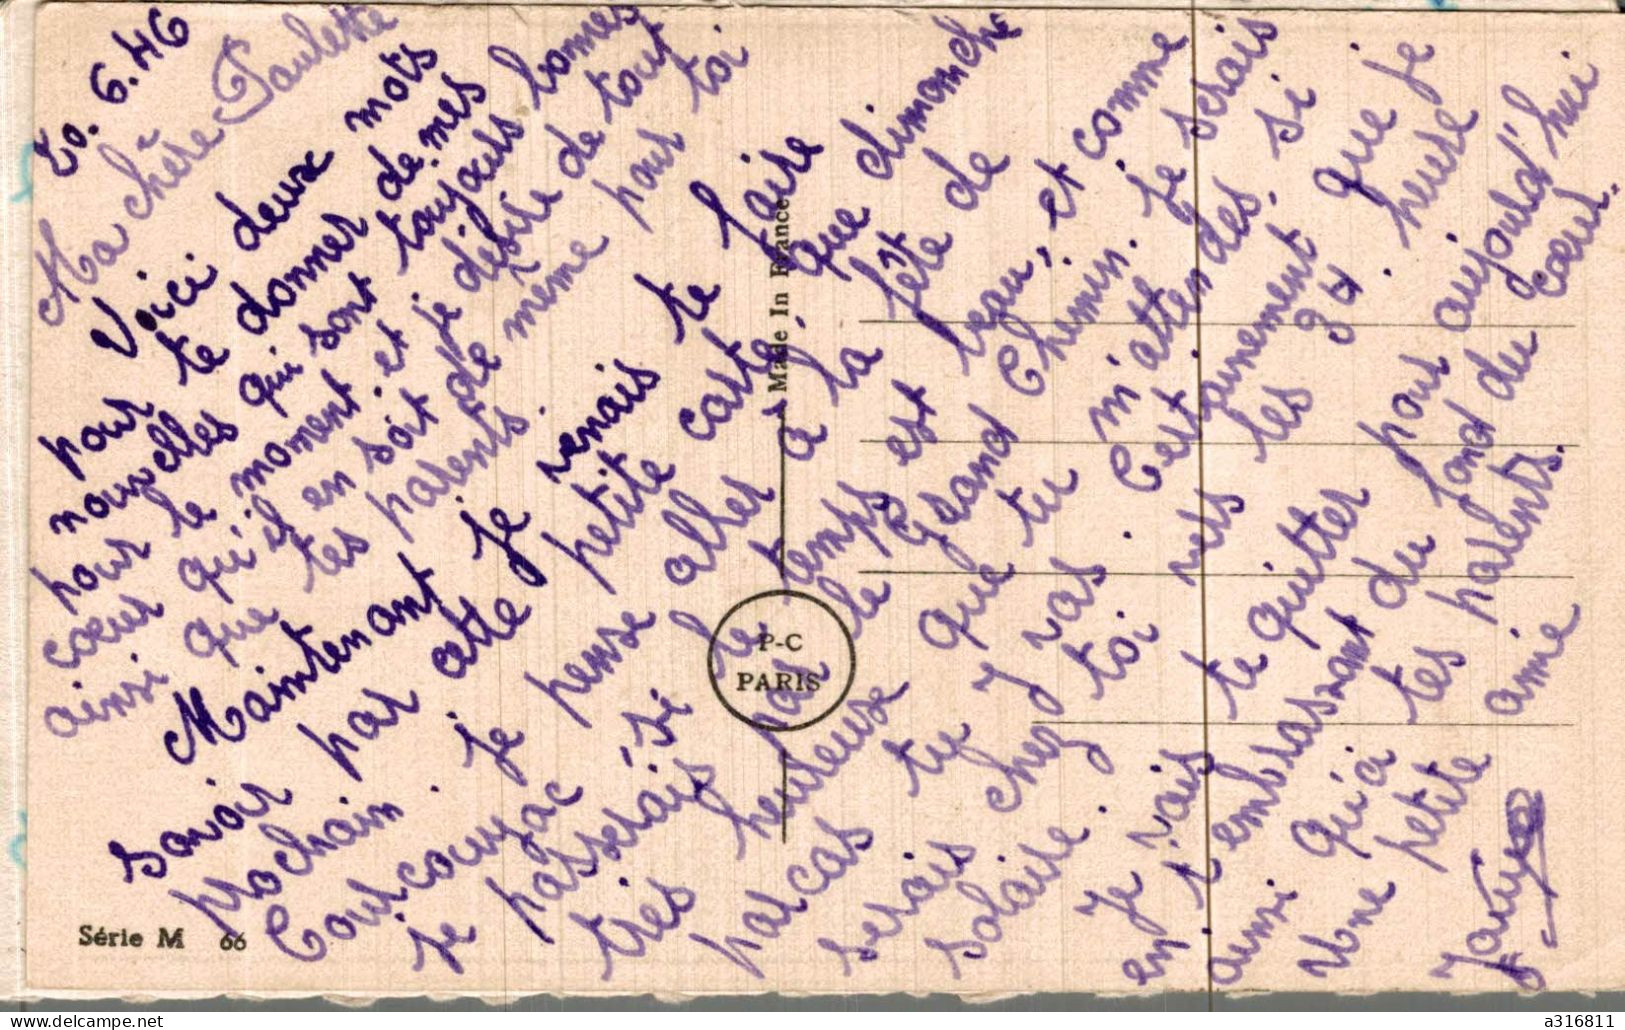 20.6.46
Ma chère Paulette
Voici deux mots
pour te donner de mes
nouvelles qui sont toujours bonnes
pour le moment. et je désire de tout
cœur qu'il en soit de même pour toi
ainsi que tes parents.
Maintenant je venais te faire
savoir par cette petite carte, que dimanche
prochain. je pense aller à la fête de
Courcouyac, si le temps est beau, et comme
je passerais par le Grand Chemin. Je serais
très heureuse que tu m'attendes, si
par cas tu y vas. Certainement que je
serais chez toi vers les 3 4. heure
solaire.
Je vais te quitter pour aujourd'hui
en t'embrassant du fond du cœur.
ainsi qu'à tes parents.
Une petite amie
Made In France
P-C
PARIS
Série M 66
a316811